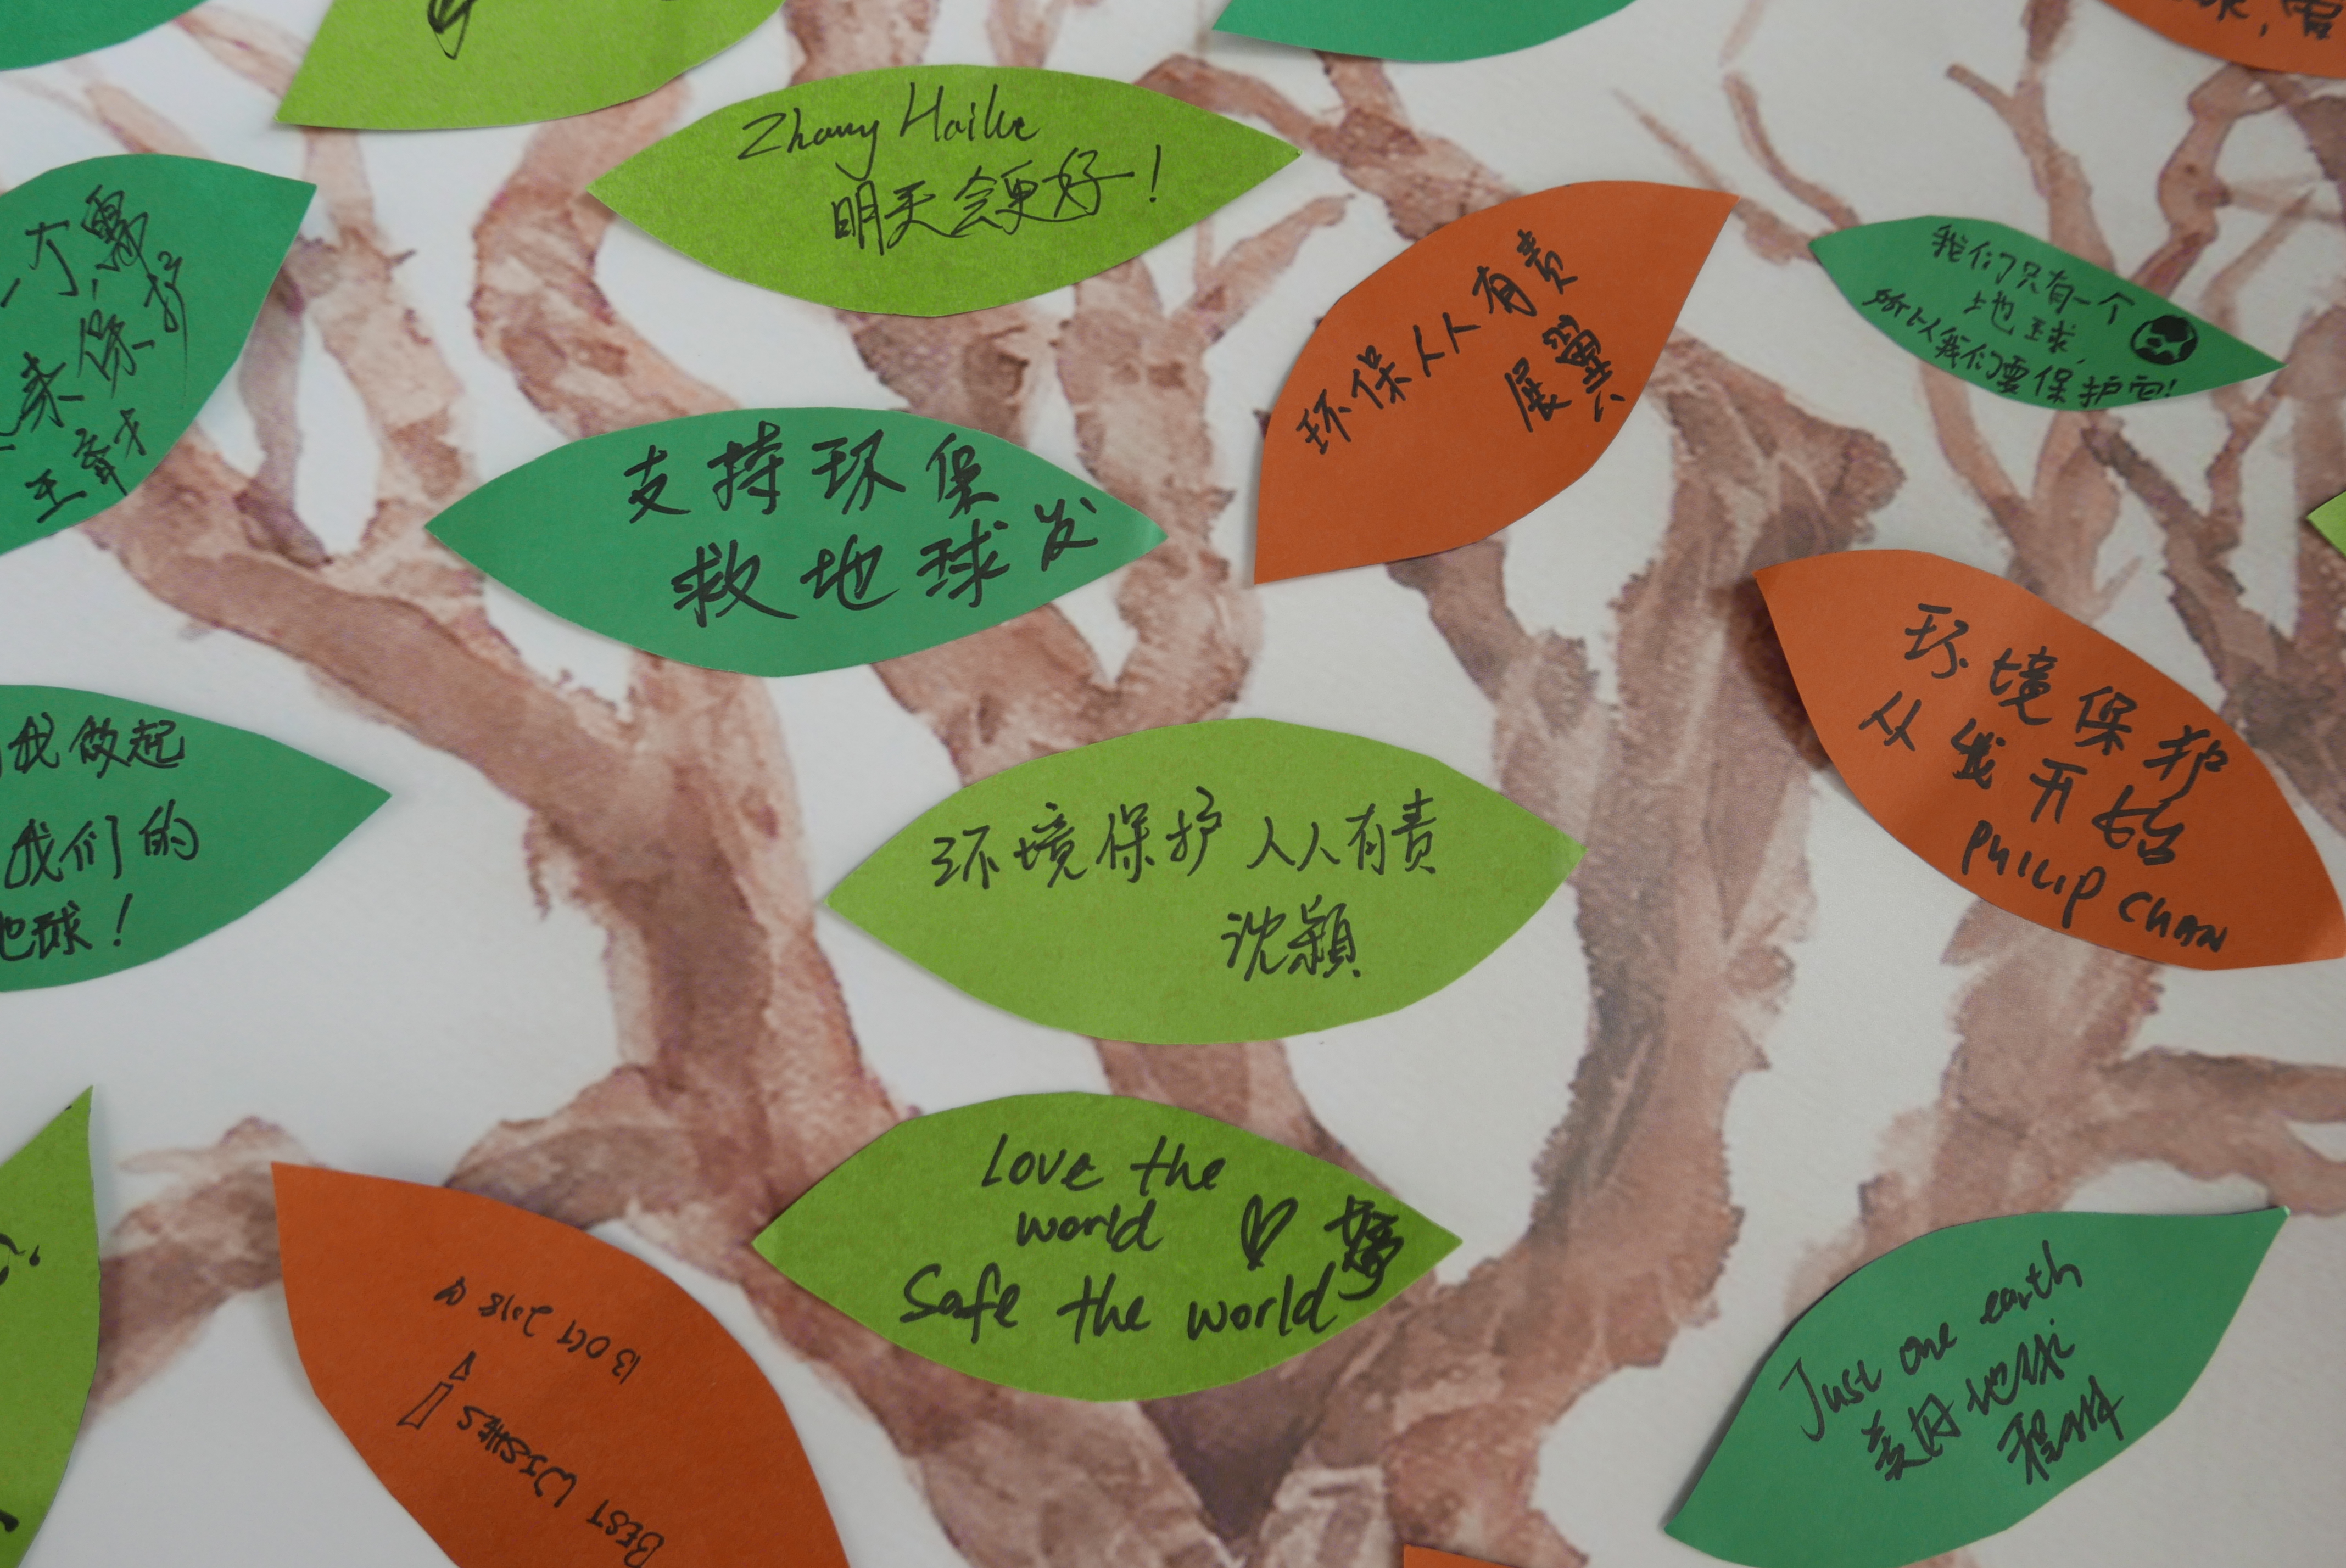 Zhang Haike
明天会更好!
一个,需
来保护
环保人人有责
展翼
我们只有一个
地球,
所以我们要保护它!
支持环保
救地球发
环境保护
从我开始
PHILIP CHAN
我做起
我们的
地球!
环境保护 人人有责
沈颖
Love the
world
Safe the world
13 OCT 2018
BEST WISHES!
Just one earth
美好地球